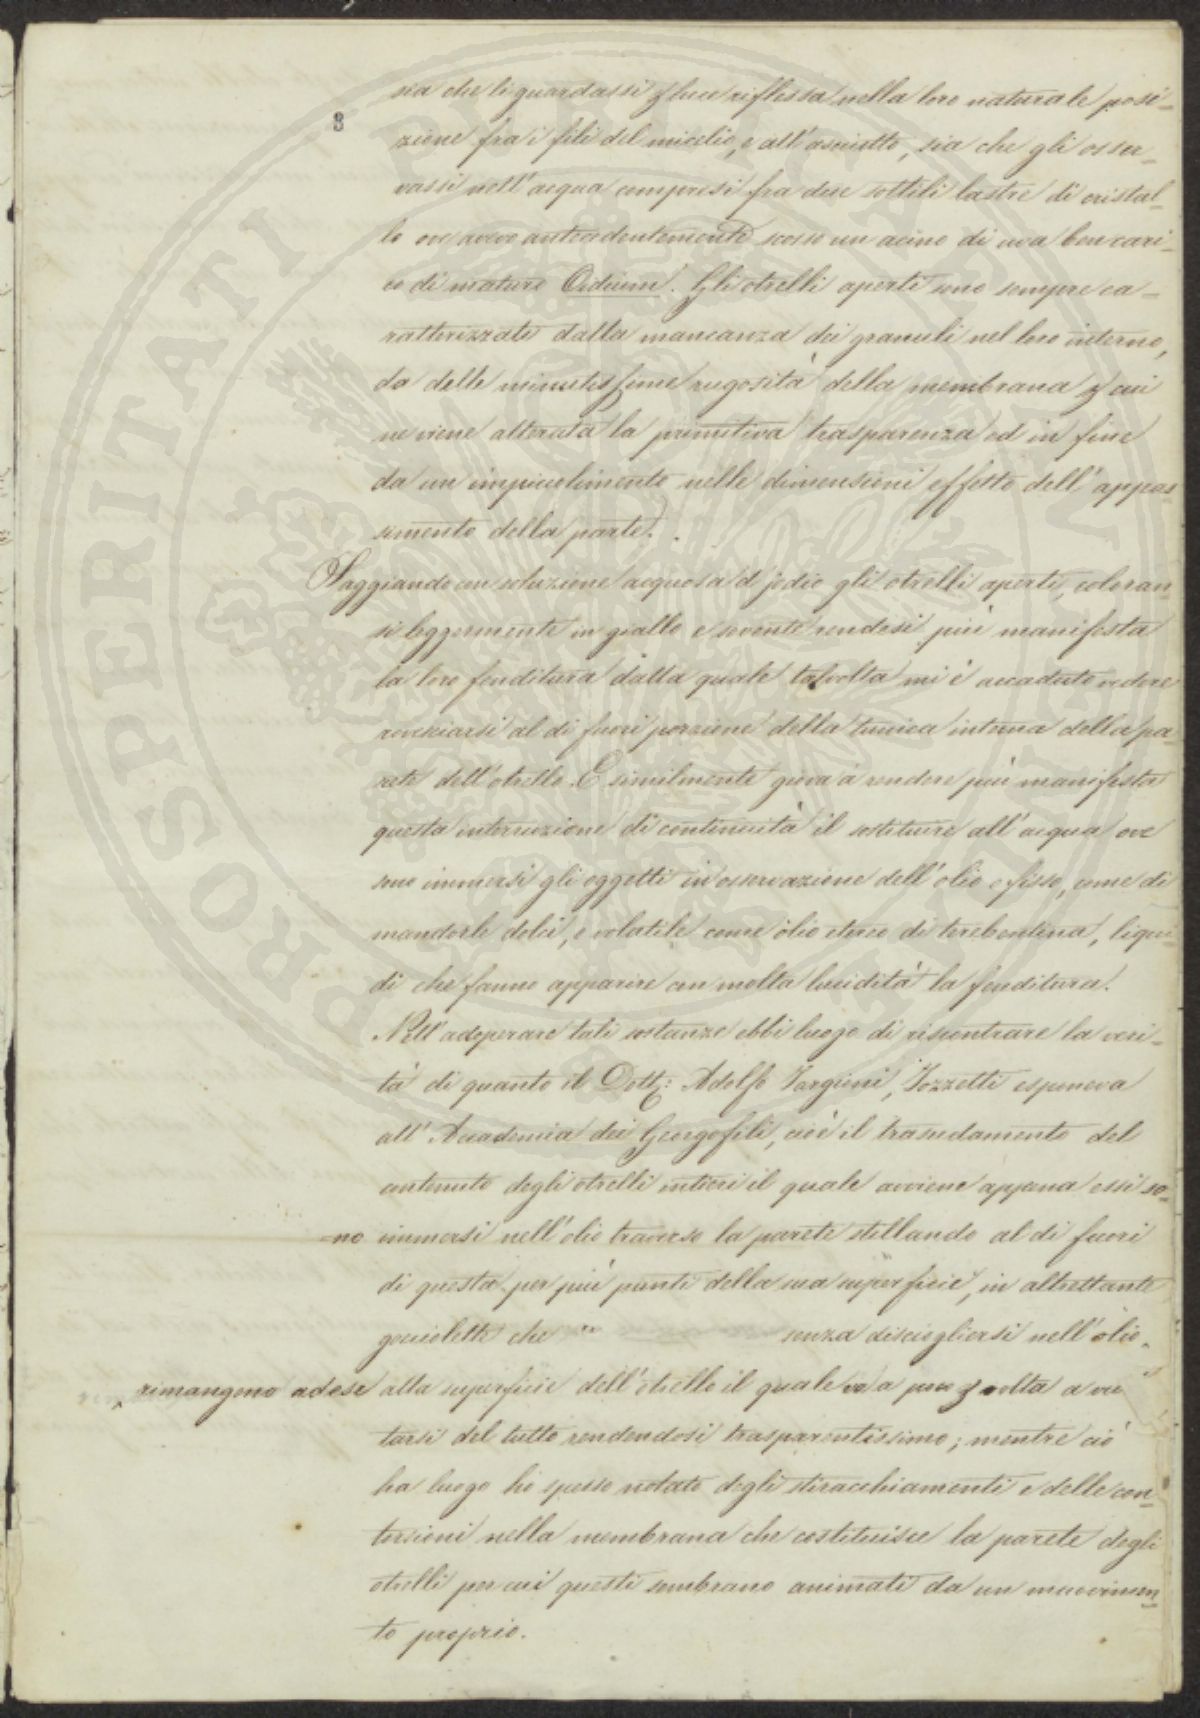 3
sia che li guardassi p luce riflessa nella loro naturale posi-
zione fra i fili del micelio, e all'asciutto, sia che gli osser-
vassi nell'acqua compresi fra due sottili lastre di cristal-
lo ove avevo antecedentemente scosso un acino di uva ben cari-
co di maturo Oidium. Gli otrelli aperti sono sempre ca-
ratterizzati dalla mancanza dei granuli nel loro interno,
da delle minutissime rugosità della membrana p cui
ne viene alterata la primitiva trasparenza ed in fine
da un impiccolimento nelle dimensioni effetto dell'appas-
simento della parte.
Saggiando con soluzione acquosa d jodio gli otrelli aperti, coloran-
si leggermente in giallo e sovente rendesi più manifesta
la loro fenditura dalla quale talvolta mi è accaduto vedere
rovesciarsi al di fuori porzione della tunica interna della pa-
rete dell'otrello. E similmente giova a rendere più manifesta
questa interruzione di continuità il sostituire all'acqua ove
sono immersi gli oggetti in osservazione dell'olio o fisso, come di
mandorle dolci, o volatile come olio etereo di terebentina, liqui-
di che fanno apparire con molta lucidità la fenditura.
Nell'adoperare tali sostanze ebbi luogo di riscontrare la veri-
tà di quanto il Dott: Adolfo Targioni, Tozzetti esponeva
all'Accademia dei Georgofili, cioè il trasudamento del
contenuto degli otrelli intieri il quale avviene appena essi so-
=no immersi nell'olio traverso la parete stillando al di fuori
di questa per più punti della sua superficie, in altrettante
gocciolette che senza disciogliersi nell'olio
rimangono adese alla superficie dell'otrello il quale va a poco p volta a vuo
tarsi del tutto rendendosi trasparentissimo; mentre ciò
ha luogo ho spesso notato degli stiracchiamenti e delle con-
torsioni nella membrana che costituisce la parete degli
otrelli per cui questi sembrano animati da un muovimen-
to proprio.
PROSPERITATI PUBLICAE AUGENDAE